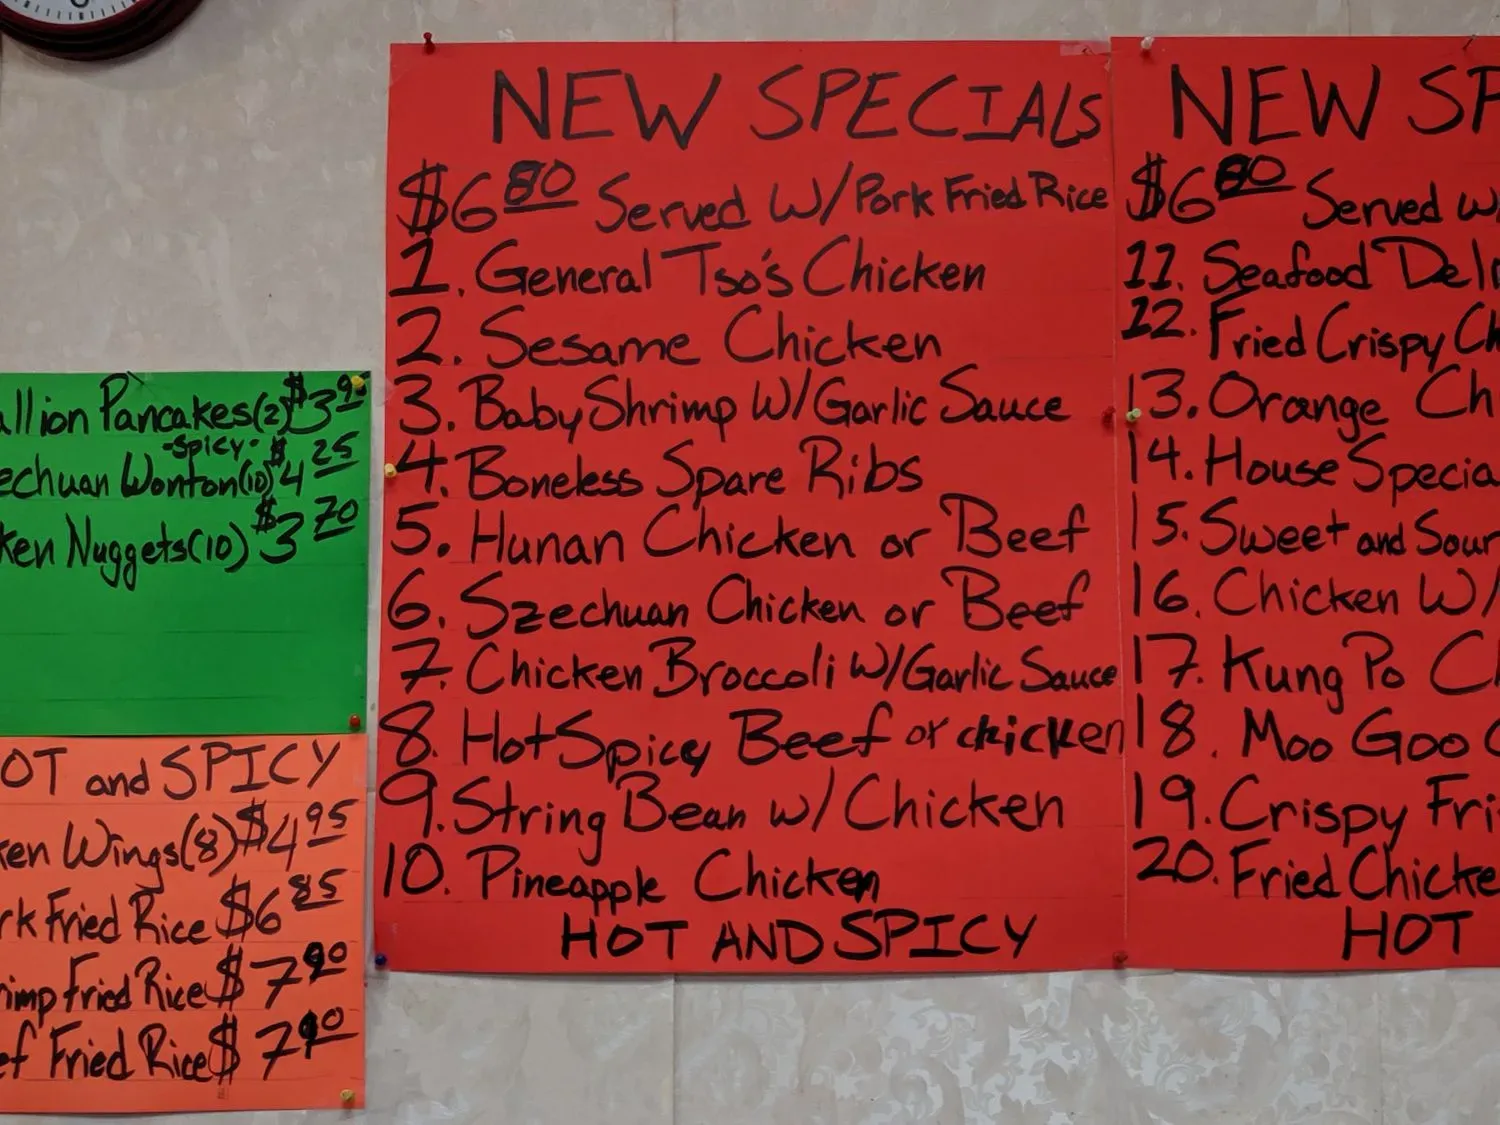 Pancakes(2) $3.95
-Spicy-
Wonton(10) $4.25
Nuggets(10) $3.70
and SPICY
Wings(8) $4.95
Fried Rice $6.85
Fried Rice $7.90
Fried Rice $7.90
NEW SPECIALS
$6.80 Served W/Pork Fried Rice
1. General Tso's Chicken
2. Sesame Chicken
3. Baby Shrimp W/Garlic Sauce
4. Boneless Spare Ribs
5. Hunan Chicken or Beef
6. Szechuan Chicken or Beef
7. Chicken Broccoli W/Garlic Sauce
8. Hot Spicy Beef or chicken
9. String Bean w/ Chicken
10. Pineapple Chicken
HOT AND SPICY
NEW SP
$6.80 Served w/
11. Seafood Del
12. Fried Crispy Ch
13. Orange Ch
14. House Specia
15. Sweet and Sour
16. Chicken W/
17. Kung Po Ch
18. Moo Goo
19. Crispy Fri
20. Fried Chicke
HOT